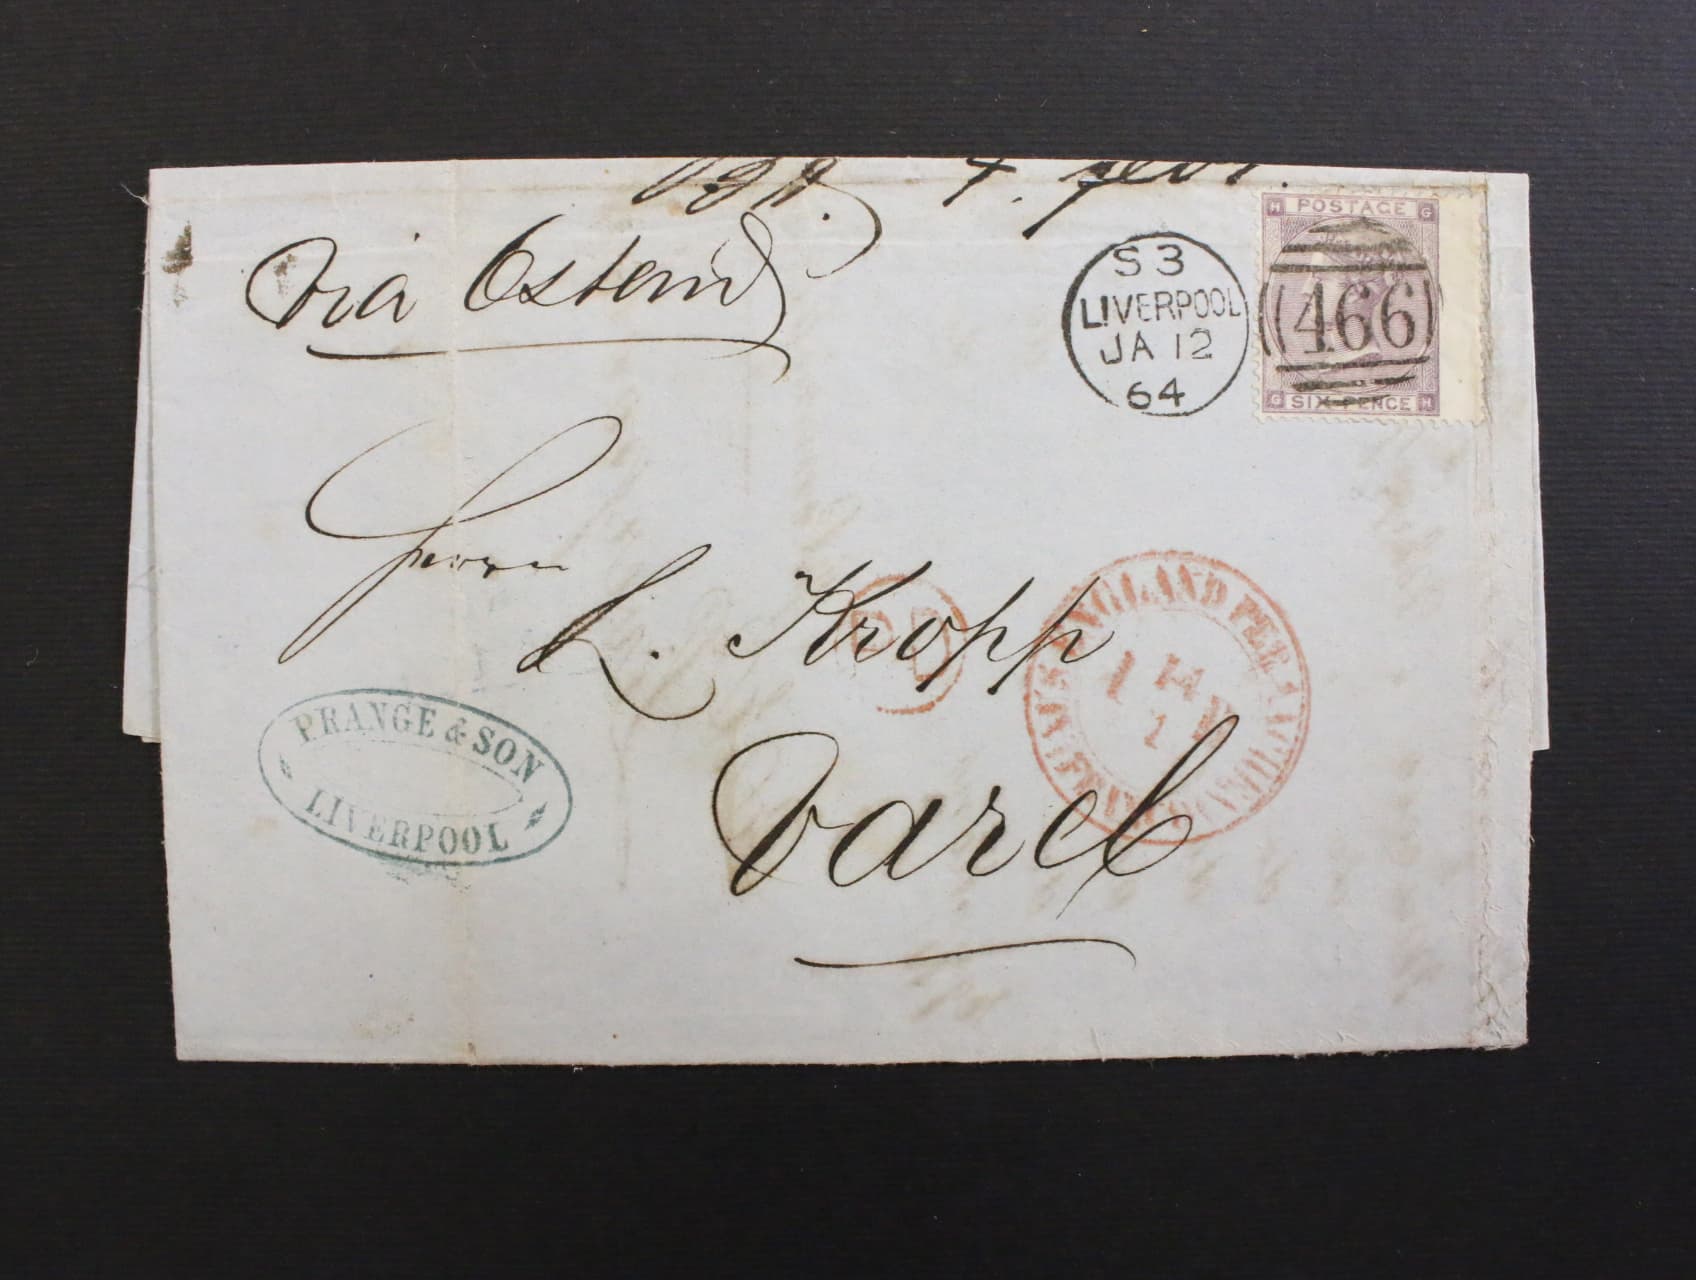 via Ostend
S3
LIVERPOOL
JA 12
64
H POSTAGE G
466
G SIX PENCE H
Herrn
L. Kropp
Varel
PD
ENGLAND PER AACHEN
14
1
PRANGE & SON
LIVERPOOL